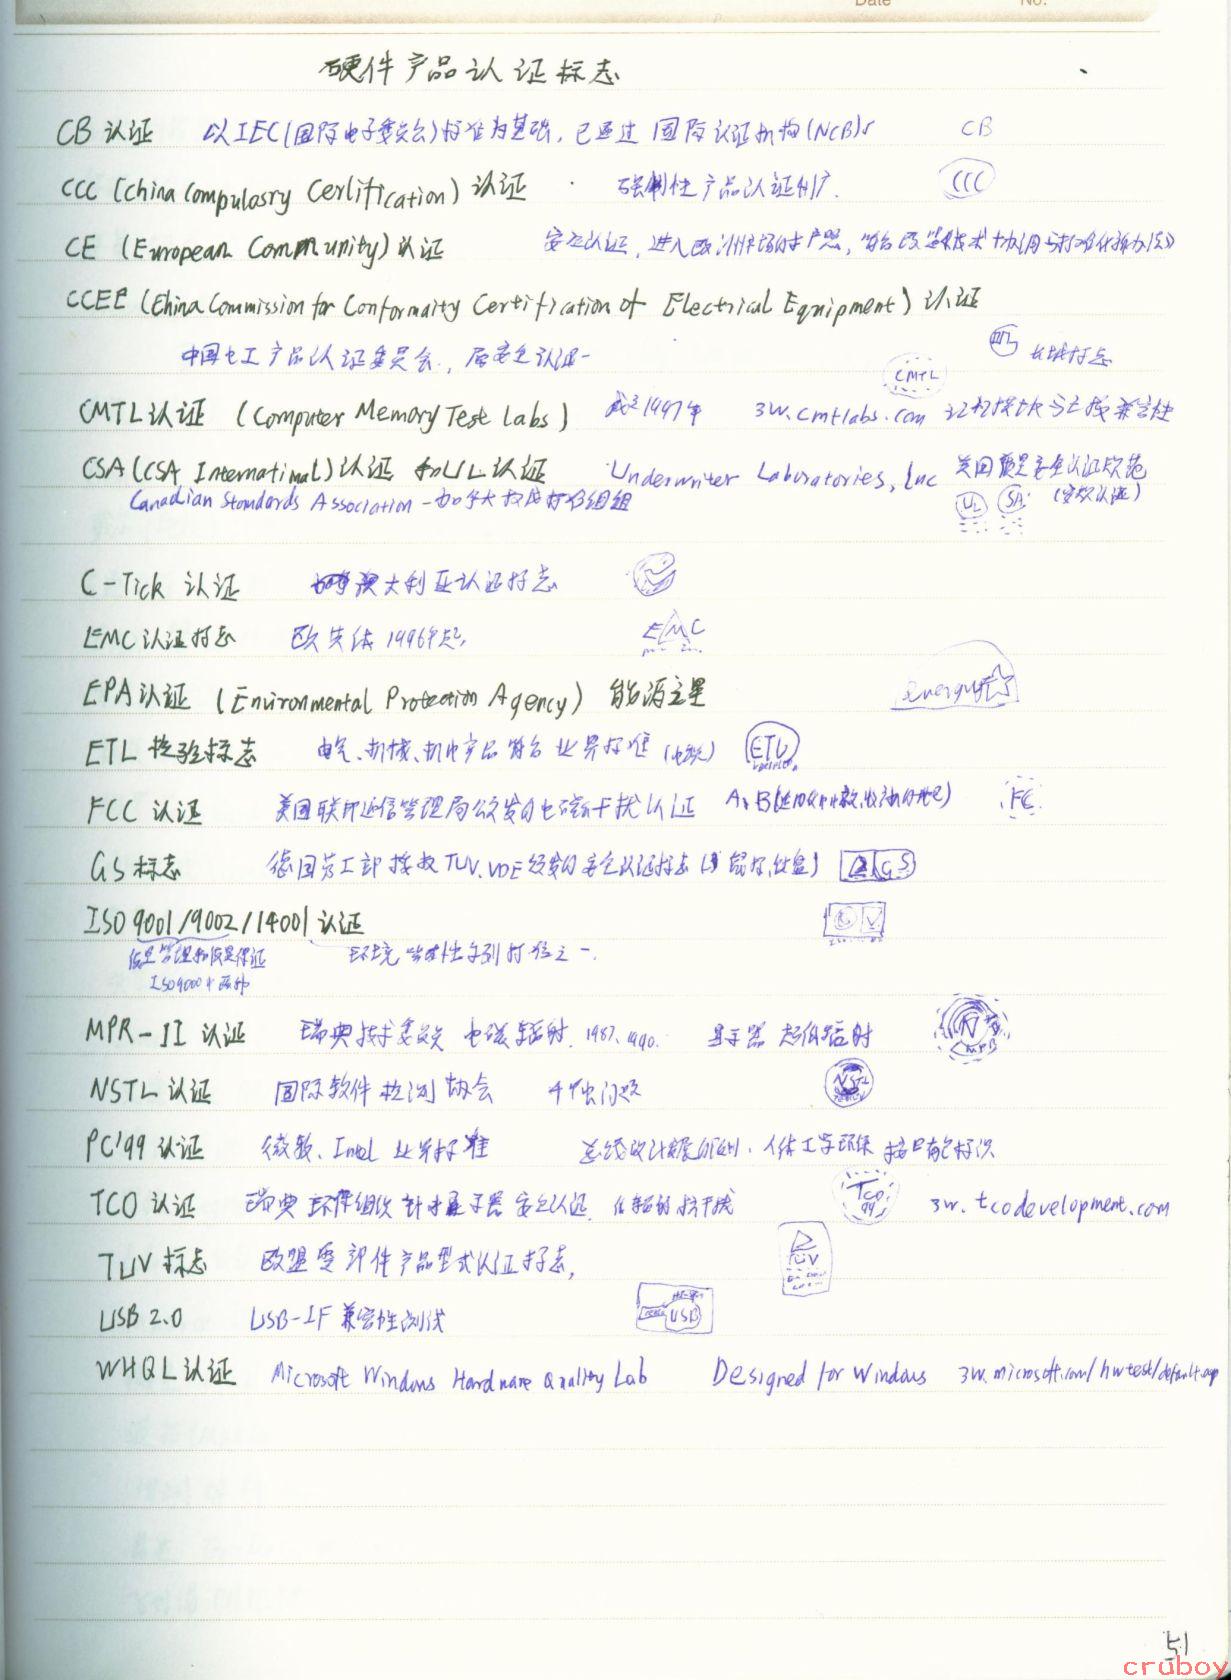 Date No.
硬件产品认证标志
CB 认证 以IEC(国际电子委员会)标准为基础,已通过 国际认证机构(NCB) CB
CCC (China Compulasry Cerlification) 认证 强制性产品认证 CCC
CE (European Community) 认证 安全认证,进入欧洲市场的护照,符合欧盟《技术协调与标准化新办法》
CCEE (China Commission for Conformaity Certification of Electrical Equipment) 认证
中国电工产品认证委员会, 安全认证 长城标志
CMTL
CMTL认证 (Computer Memory Test Labs) 成立1997年 3w.cmtlabs.com 兼容性
CSA(CSA International)认证 和UL认证 Underwriter Laboratories, Inc 美国 安全认证
Canadian Standards Association 加拿大 组织 UL SA
C-Tick 认证 澳大利亚认证标志
EMC认证标志 欧共体1996年起, EMC
EPA认证 (Environmental Protection Agency) 能源之星 energy
ETL 检验标志 电气、机械、机电产品符合业界标准 ETL
FCC 认证 美国联邦通信管理局颁发的电磁干扰认证 A、B FC
GS标志 德国劳工部授权TUV、VDE颁发的安全认证标志 GS
ISO 9001/9002/14001 认证
质量管理和质量保证 环境管理 系列标准之一.
ISO9000中两种
MPR-II 认证 瑞典技术委员会 电磁辐射. 1987、1990. 显示器 超低辐射 MPR
NSTL 认证 国际软件检测协会 千年虫问题 NSTL
PC'99 认证 微软、Intel 业界标准 总线设计 人体工学环保 接口有色标识
TCO 认证 瑞典 组织 针对显示器 安全认证 TCO 99 3w.tcodevelopment.com
TUV 标志 欧盟零部件产品型式认证标志, TUV
USB 2.0 USB-IF 兼容性测试 USB
WHQL认证 Microsoft Windows Hardware Quality Lab Designed for Windows 3w.microsoft.com/hwtest/default.asp
51
cruboy